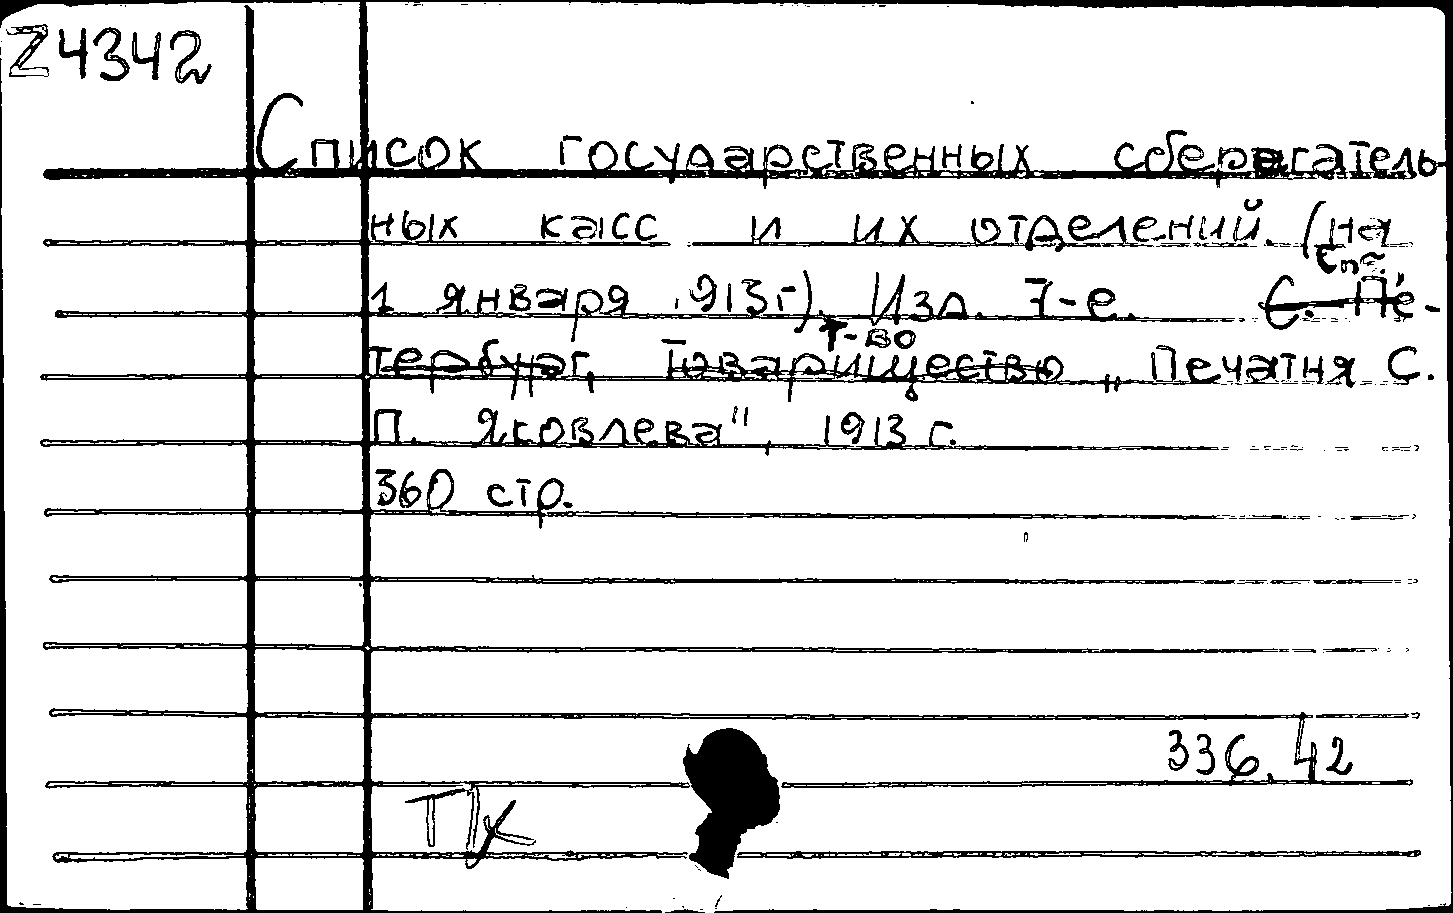 Z4342
Список государственных сберегатель-
ных касс и их отделений. (на
Спб.
1 января 1913 г). Изд. 7-е. С. Пе-
Т-во
тербург, Товарищество „Печатня С.
П. Яковлева", 1913 г.
360 стр.
336.42